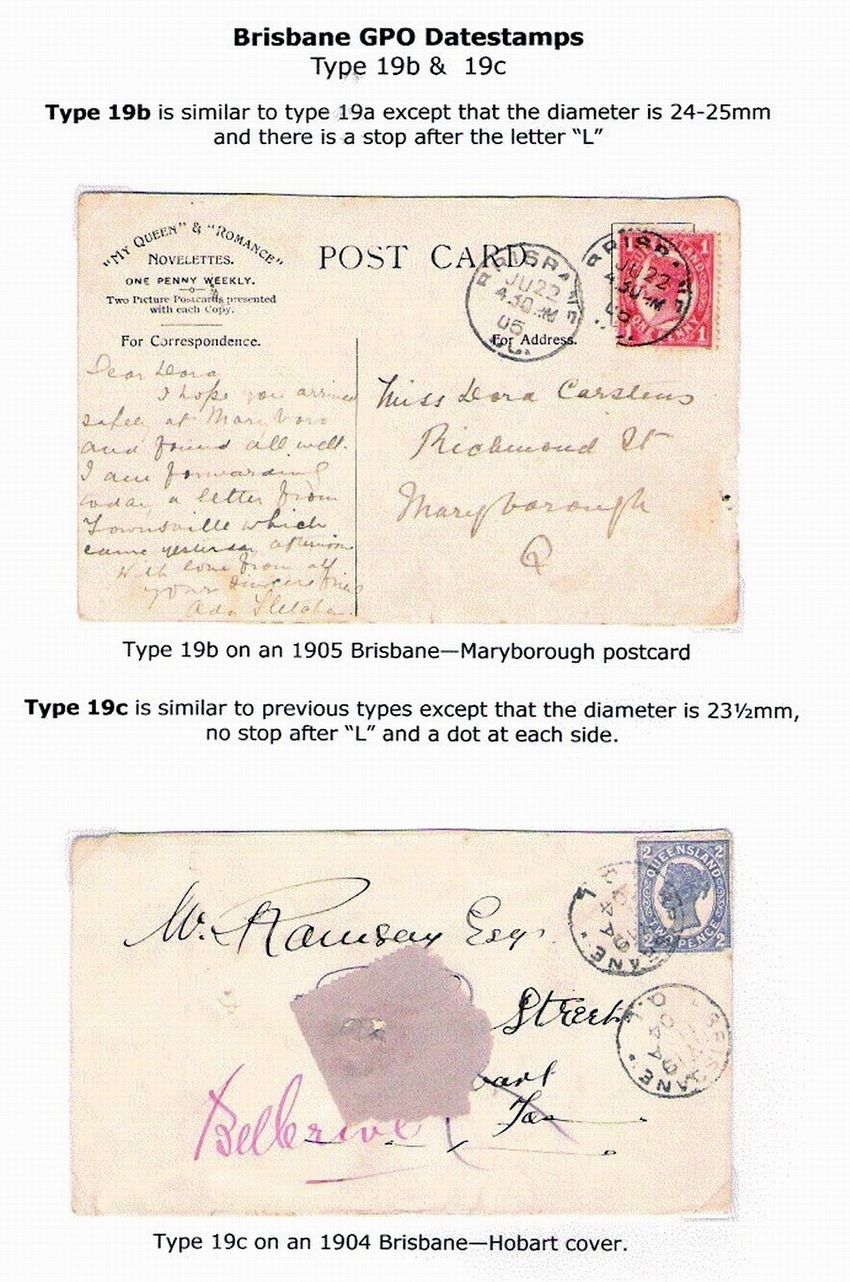 Brisbane GPO Datestamps
Type 19b & 19c
Type 19b is similar to type 19a except that the diameter is 24-25mm
and there is a stop after the letter “L”
"MY QUEEN" & "ROMANCE"
NOVELETTES.
ONE PENNY WEEKLY.
Two Picture Postcards presented
with each Copy.
For Correspondence.
POST CARD
For Address.
BRISBANE
JU 22
4.30 PM
05
1
1
ONE PENNY
1
1
Dear Dora
I hope you arrived
safely at Maryboro
and found all well.
I am forwarding
today a letter from
Townsville which
came yesterday afternoon
With love from all
your sincere friend
Ada Fletcher
Miss Dora Carstens
Richmond St
Maryborough
Q
Type 19b on an 1905 Brisbane—Maryborough postcard
Type 19c is similar to previous types except that the diameter is 23½mm,
no stop after “L” and a dot at each side.
2
2
QUEENSLAND
TWO PENCE
2
Mr. Ramsay Esqr.
Street
Tas
Bellerive
BRISBANE
Type 19c on an 1904 Brisbane—Hobart cover.